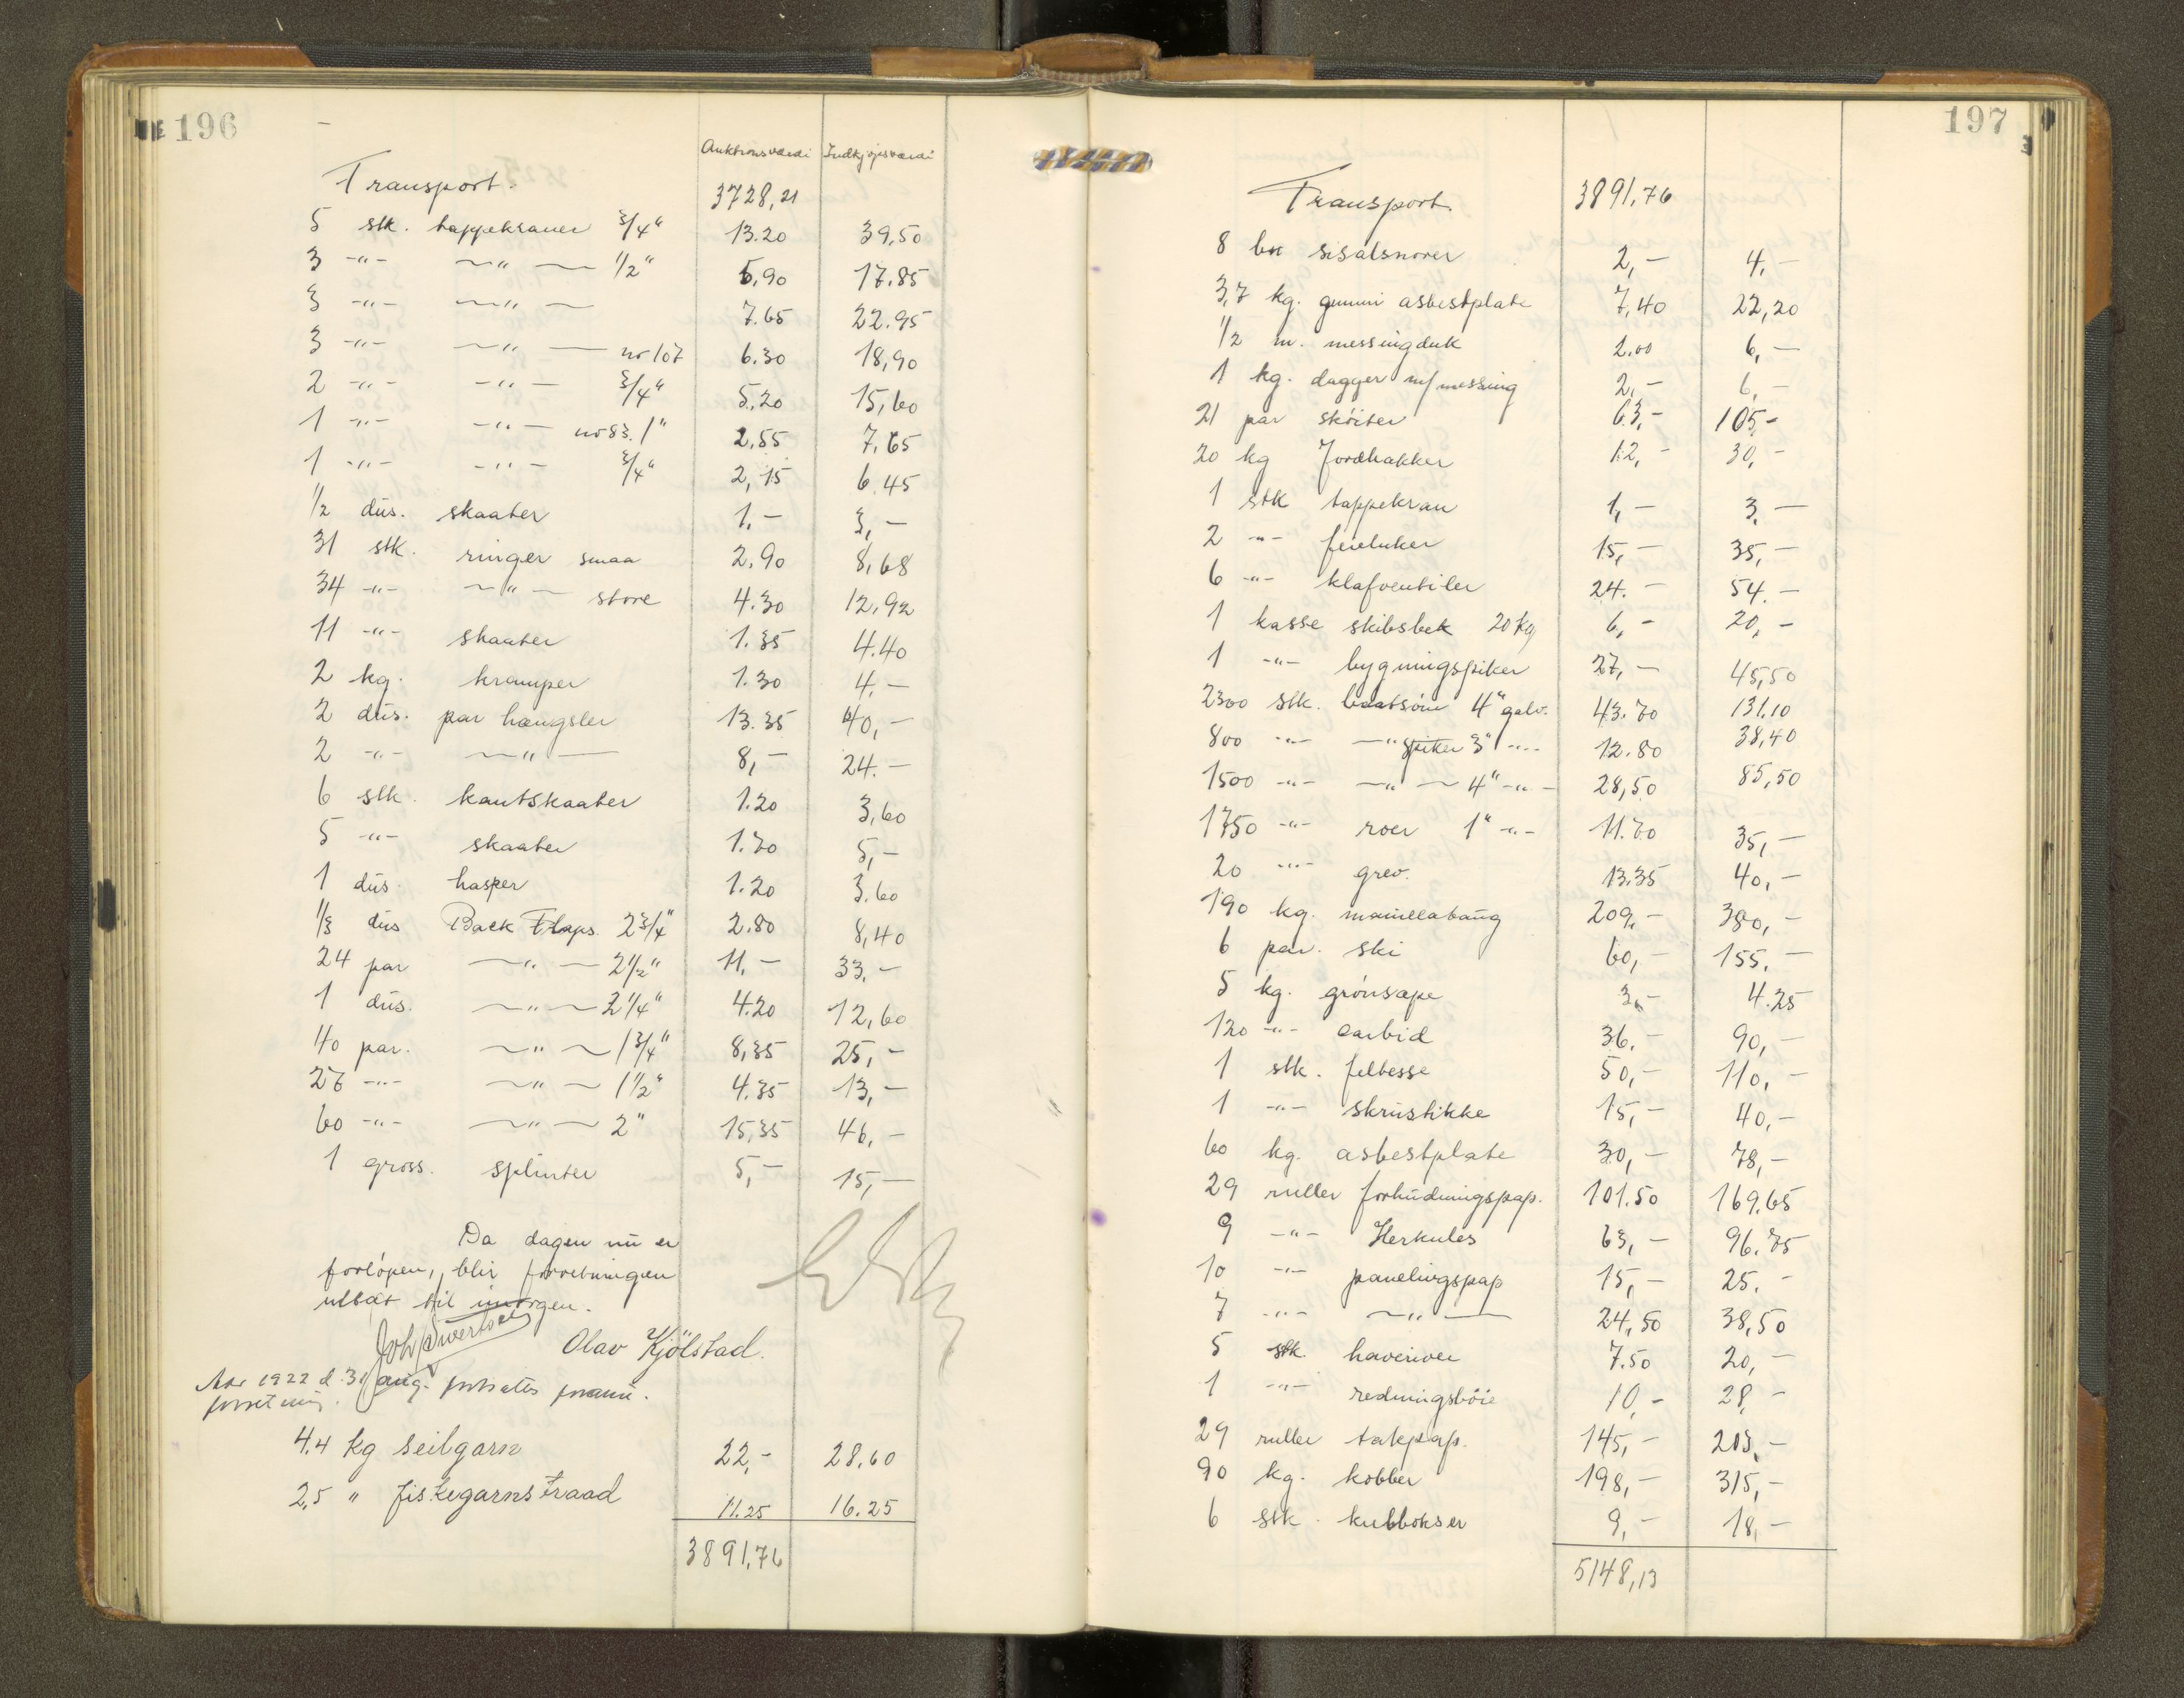 196
Auktionsværdi Indkjøpsværdi
Transport. 3728,21
5 stk. tappekraner 3/4" 13.20 39,50
3 -"- -"- 1/2" 5,90 17.85
3 -"- -"- 7.65 22.95
3 -"- -"- no 107 6.30 18,90
2 -"- -"- 3/4" 5,20 15,60
1 -"- -"- no 83. 1" 2,55 7,65
1 -"- -"- 3/4" 2,15 6.45
1/2 dus. skaater 1,- 3,-
31 stk. ringer smaa 2,90 8,68
34 -"- -"- store 4.30 12,92
11 -"- skaater 1.35 4.40
2 kg. kramper 1.30 4,-
2 dus. par hængsler 13.35 40,-
2 -"- -"- 8,- 24.-
6 stk. kantskaater 1.20 3,60
5 -"- skaater 1.70 5,-
1 dus. hasper 1.20 3.60
1/3 dus Back Flaps. 2 3/4" 2.80 8,40
24 par -"- 2 1/2" 11,- 33.-
1 dus. -"- 2 1/4" 4.20 12,60
40 par. -"- 1 3/4" 8,35 25,-
26 -"- -"- 1 1/2" 4.35 13,-
60 -"- -"- 2" 15,35 46,-
1 gross. splinter 5,- 15,-
Da dagen nu er
forløpen, blir forretningen
utsat til imorgen.
Joh Sivertsen
Olav Kjölstad.
Aar 1922 d. 31 aug. fortsattes
forretning.
4.4 kg seilgarn 22,- 28.60
2,5 " fiskegarnstraad 11.25 16.25
3891,76
197
Transport. 3891,76
8 bn sisalsnorer 2,- 4,-
3,7 kg. gummi asbestplate 7,40 22,20
1/2 m. messingduk 2.00 6,-
1 kg. dagger m/messing 2,- 6,-
21 par skøiter 63,- 105,-
20 kg Jordhakker 12,- 30,-
1 stk tappekran 1,- 3,-
2 -"- feieluker 15,- 35,-
6 -"- klafventiler 24.- 54.-
1 kasse skibsbek 20 kg 6,- 20,-
1 -"- bygningspiker 27,- 45,50
2300 stk. baatsøm 4" galv. 43.70 131.10
800 -"- -"- spiker 3" -"- 12.80 38,40
1500 -"- -"- 4" -"- 28,50 85,50
1750 -"- roer 1" -"- 11.70 35,-
20 -"- grev. 13.35 40,-
190 kg. manillataug 209,- 380,-
6 par. ski 60,- 155.-
5 kg. grønsæpe 3,- 4.25
120 -"- carbid 36.- 90,-
1 stk. feltesse 50,- 110,-
1 -"- skrustikke 15,- 40,-
60 kg. asbestplate 30,- 78,-
29 ruller forhudningspap. 101.50 169,65
9 -"- Herkules 63,- 96.75
10 -"- panelingspap 15,- 25.-
7 -"- -"- 24,50 38,50
5 stk. haveriver 7.50 20,-
1 -"- redningsbøie 10,- 28,-
29 ruller takpap. 145,- 203,-
90 kg. kobber 198,- 315,-
6 stk. kubbokser 9,- 18,-
5148,13